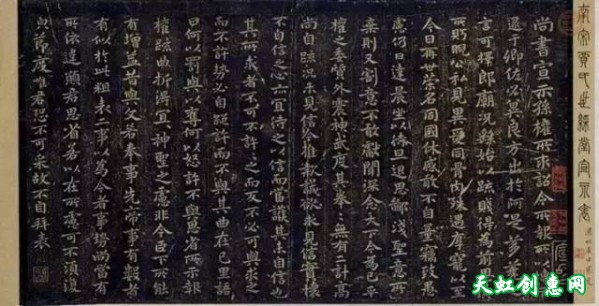 尚書宣示孫權所求詔令所報所以
逮于卿佐必冀良方出於阿是芻
言可擇郎廟況繇始以疏賤得為前
所盻睨公私見異愛同骨肉殊遇厚寵以
今日再世榮名同國休慼敢不自量竊致愚
慮仍日達晨坐以待旦退思鄙淺聖意所
棄則又割意不敢獻聞深念天下今為已
權之委質外震神武度其拳拳無有二計高
尚自疏況未見信今推款誠欲求見信實懷
不自信之心亦宜待之以信而當護其未自信也
其所求者不可不許許之而反不必可與求之
而不許勢必自絕許而不與其曲在己里語
曰何以罰與以奪何以怒許不與思省所示報
權疏曲折得宜宜神聖之慮非今臣下所能
有增益昔與文若奉事先帝事有數者
有似於此粗表二事以為今者事勢尚當有
所依違願君思省若以在所慮可不須復
節度唯君恐不可采故不自拜表
天虹创意网